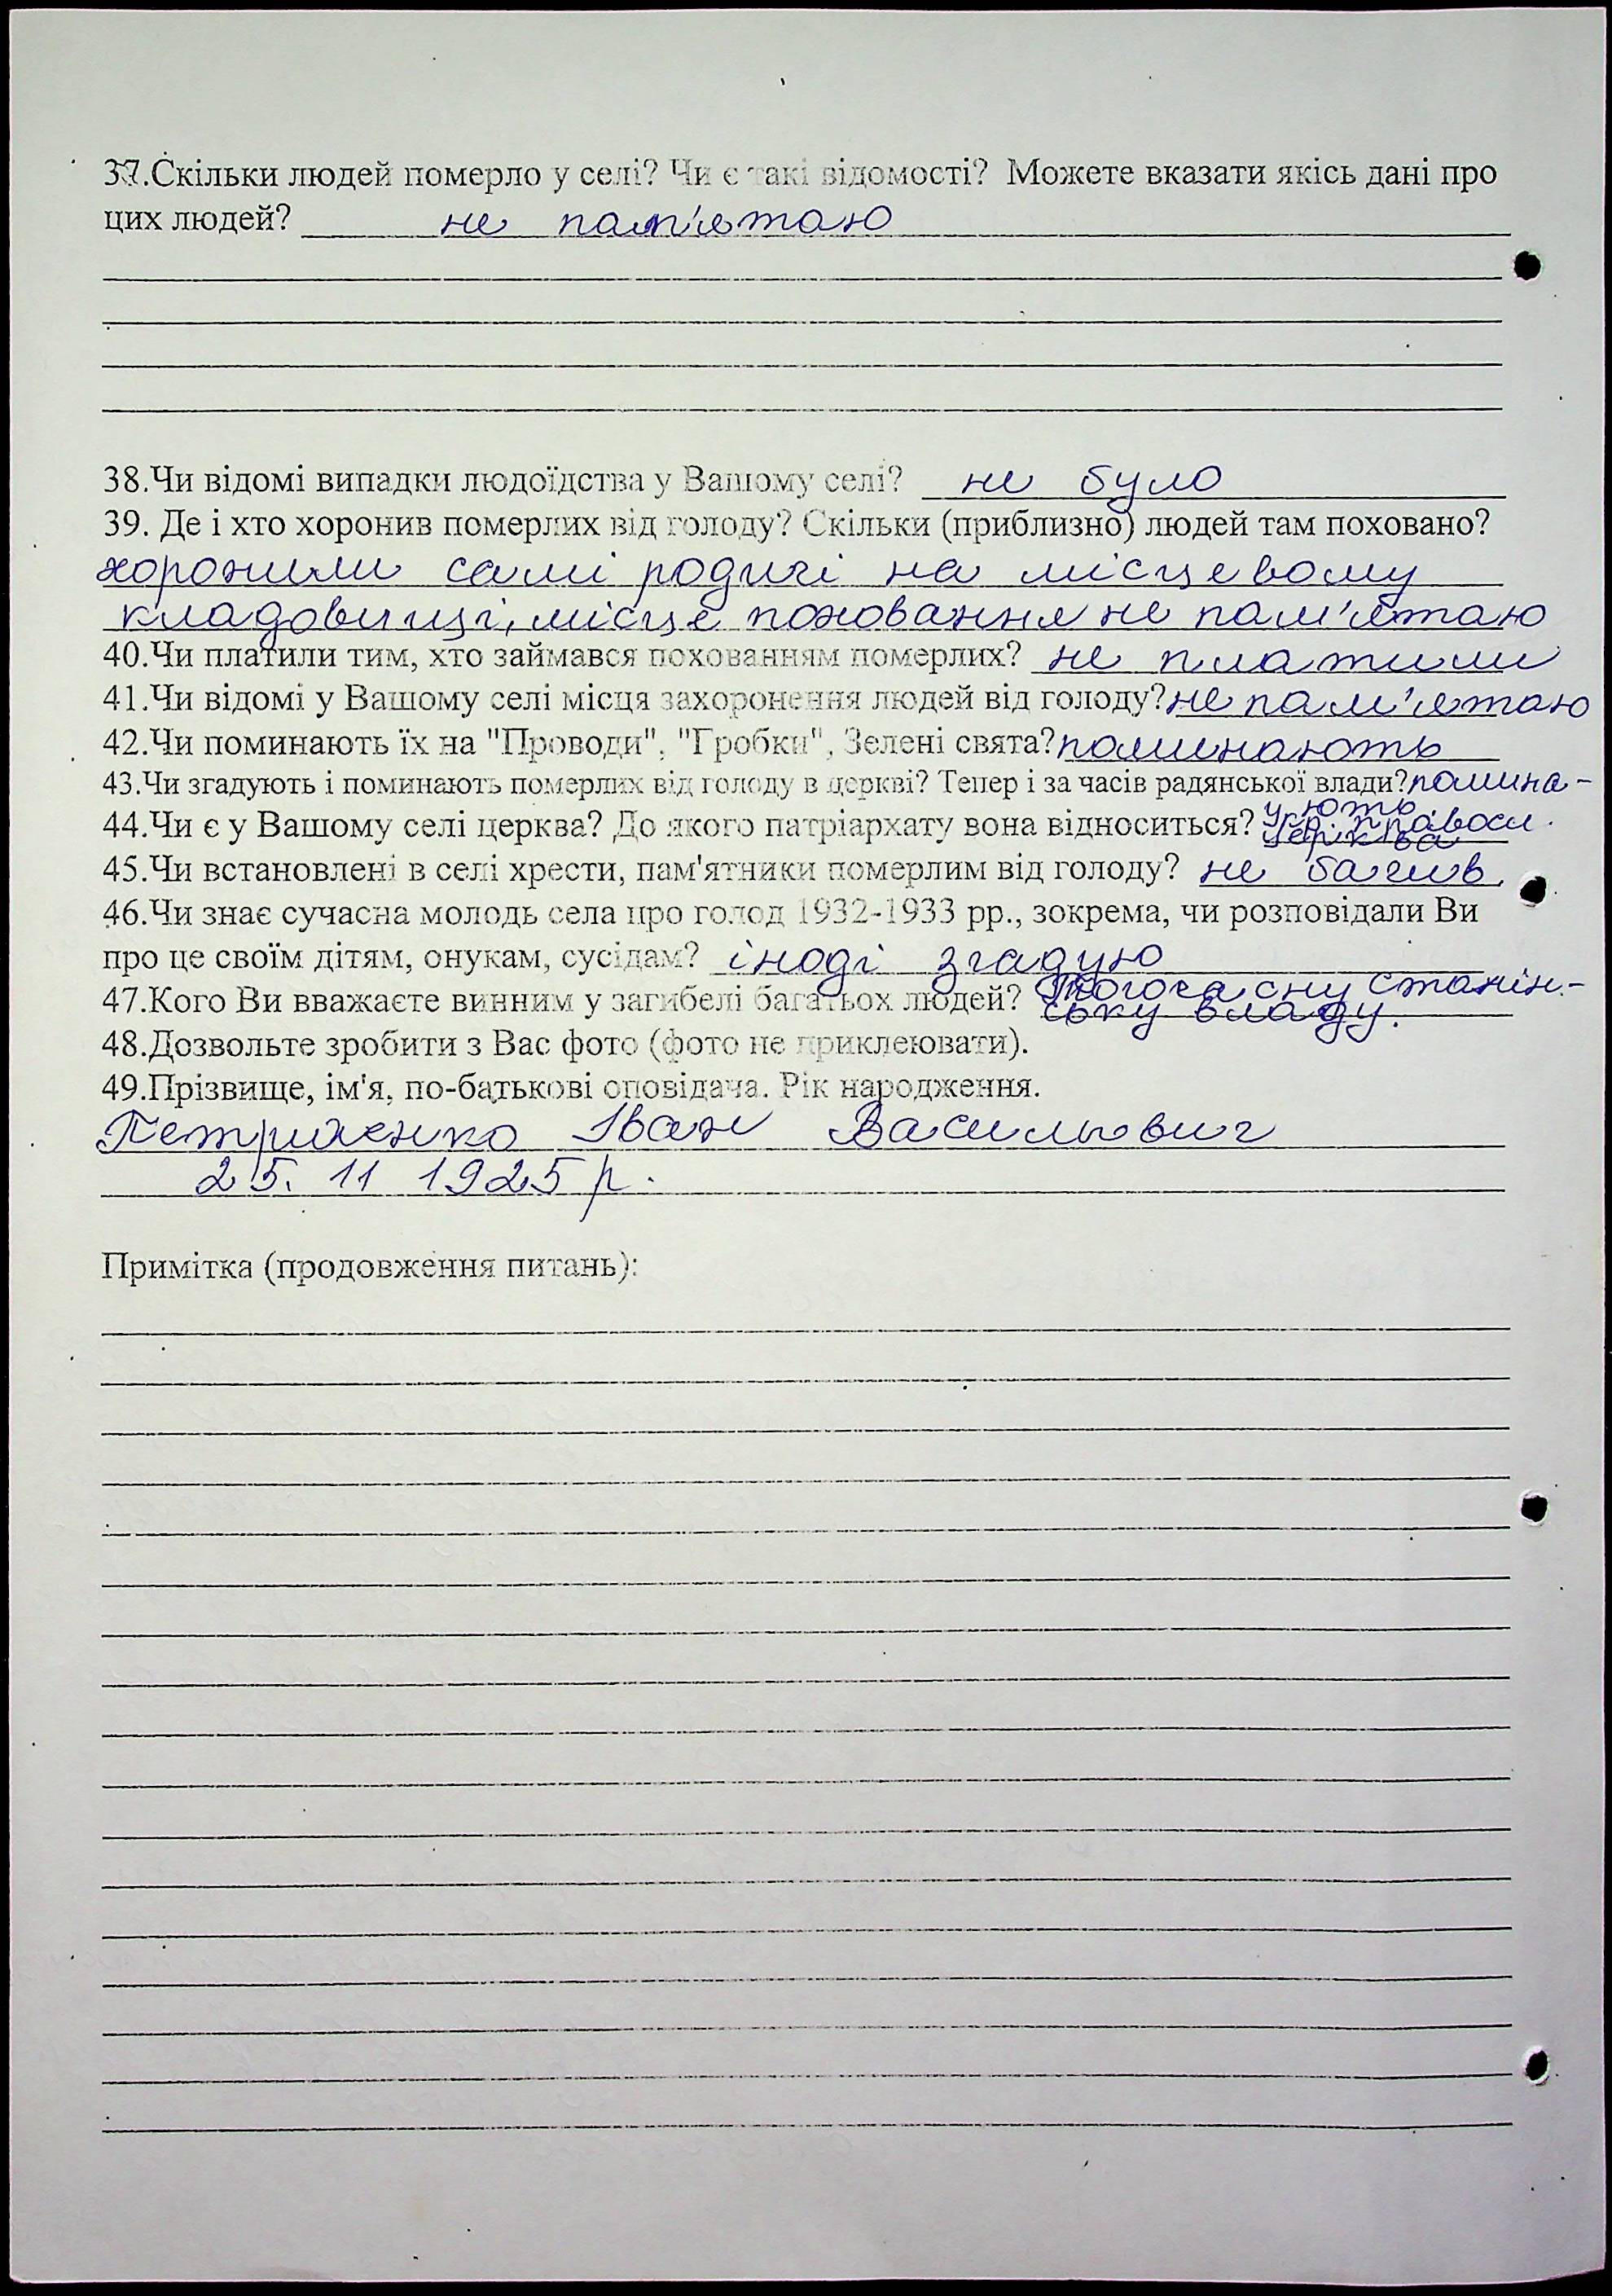 37.Скільки людей померло у селі? Чи є такі відомості? Можете вказати якісь дані про
цих людей? не пам'ятаю
38.Чи відомі випадки людоїдства у Вашому селі? не було
39. Де і хто хоронив померлих від голоду? Скільки (приблизно) людей там поховано?
хоронили самі родичі на місцевому
кладовищі, місце поховання не пам'ятаю
40.Чи платили тим, хто займався похованням померлих? не платили
41.Чи відомі у Вашому селі місця захоронення людей від голоду? не пам'ятаю
42.Чи поминають їх на "Проводи", "Гробки", Зелені свята? поминають
43.Чи згадують і поминають померлих від голоду в церкві? Тепер і за часів радянської влади? помина-
ють
44.Чи є у Вашому селі церква? До якого патріархату вона відноситься? укр. правосл.
церква
45.Чи встановлені в селі хрести, пам'ятники померлим від голоду? не бачив.
46.Чи знає сучасна молодь села про голод 1932-1933 рр., зокрема, чи розповідали Ви
про це своїм дітям, онукам, сусідам? іноді згадую
47.Кого Ви вважаєте винним у загибелі багатьох людей? Тогочасну сталін-
ську владу.
48.Дозвольте зробити з Вас фото (фото не приклеювати).
49.Прізвище, ім'я, по-батькові оповідача. Рік народження.
Іван Васильович
25. 11 1925 р.
Примітка (продовження питань):